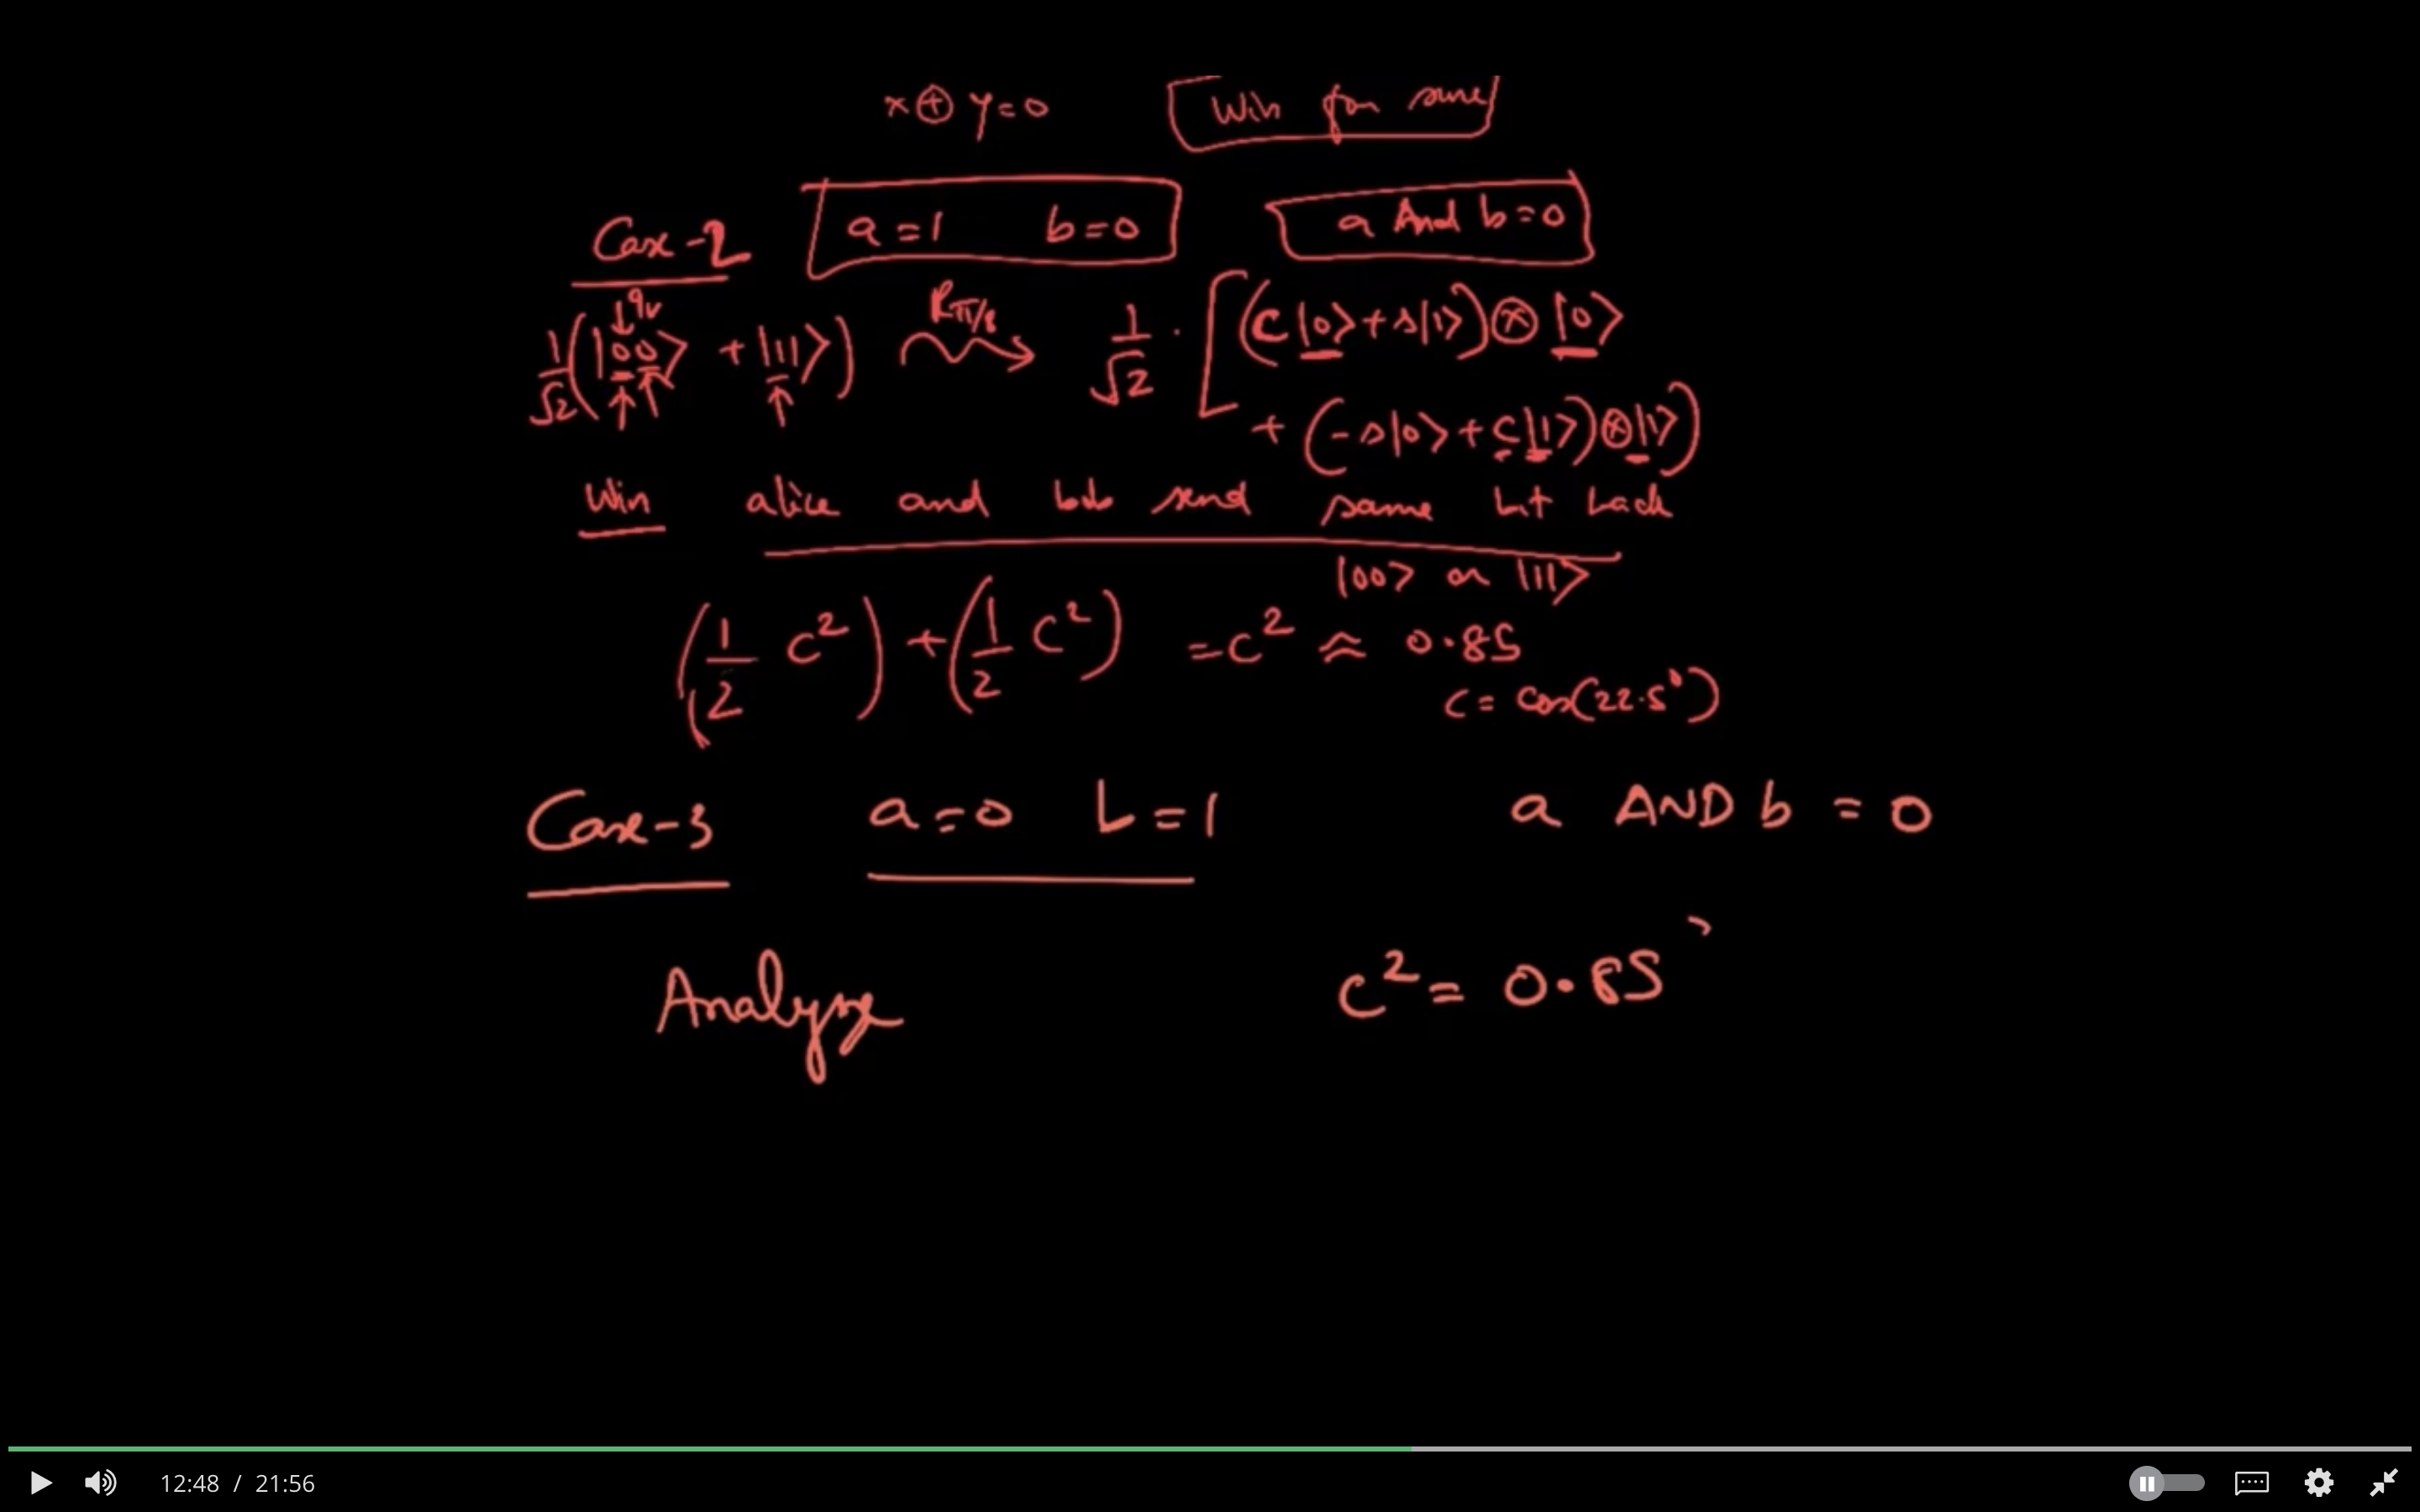 x ⊕ y = 0 Win for sure
Case-2 a = 1 b = 0 a And b = 0
↓qv
1/√2 (|00⟩ + |11⟩) R π/8 1/√2 · [(c|0⟩ + s|1⟩) ⊗ |0⟩
+ (-s|0⟩ + c|1⟩) ⊗ |1⟩)
Win alice and bob send same bit back
|00⟩ or |11⟩
(1/2 c²) + (1/2 c²) = c² ≈ 0.85
c = cos(22.5°)
Case-3 a = 0 b = 1 a AND b = 0
Analyze c² = 0.85
12:48 / 21:56